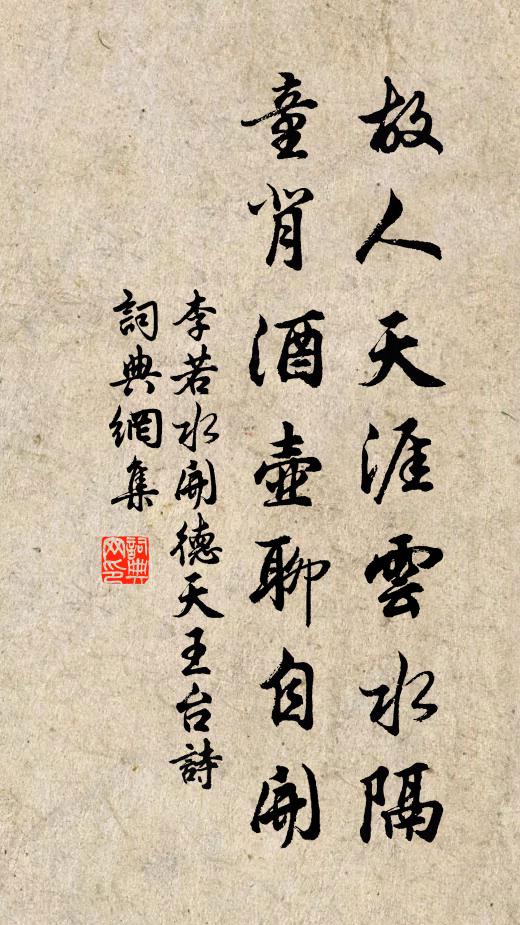 故人天涯雲水隔
童背酒壺聊自開
李若水開德天王台詩
詞典網集
詞典
网印